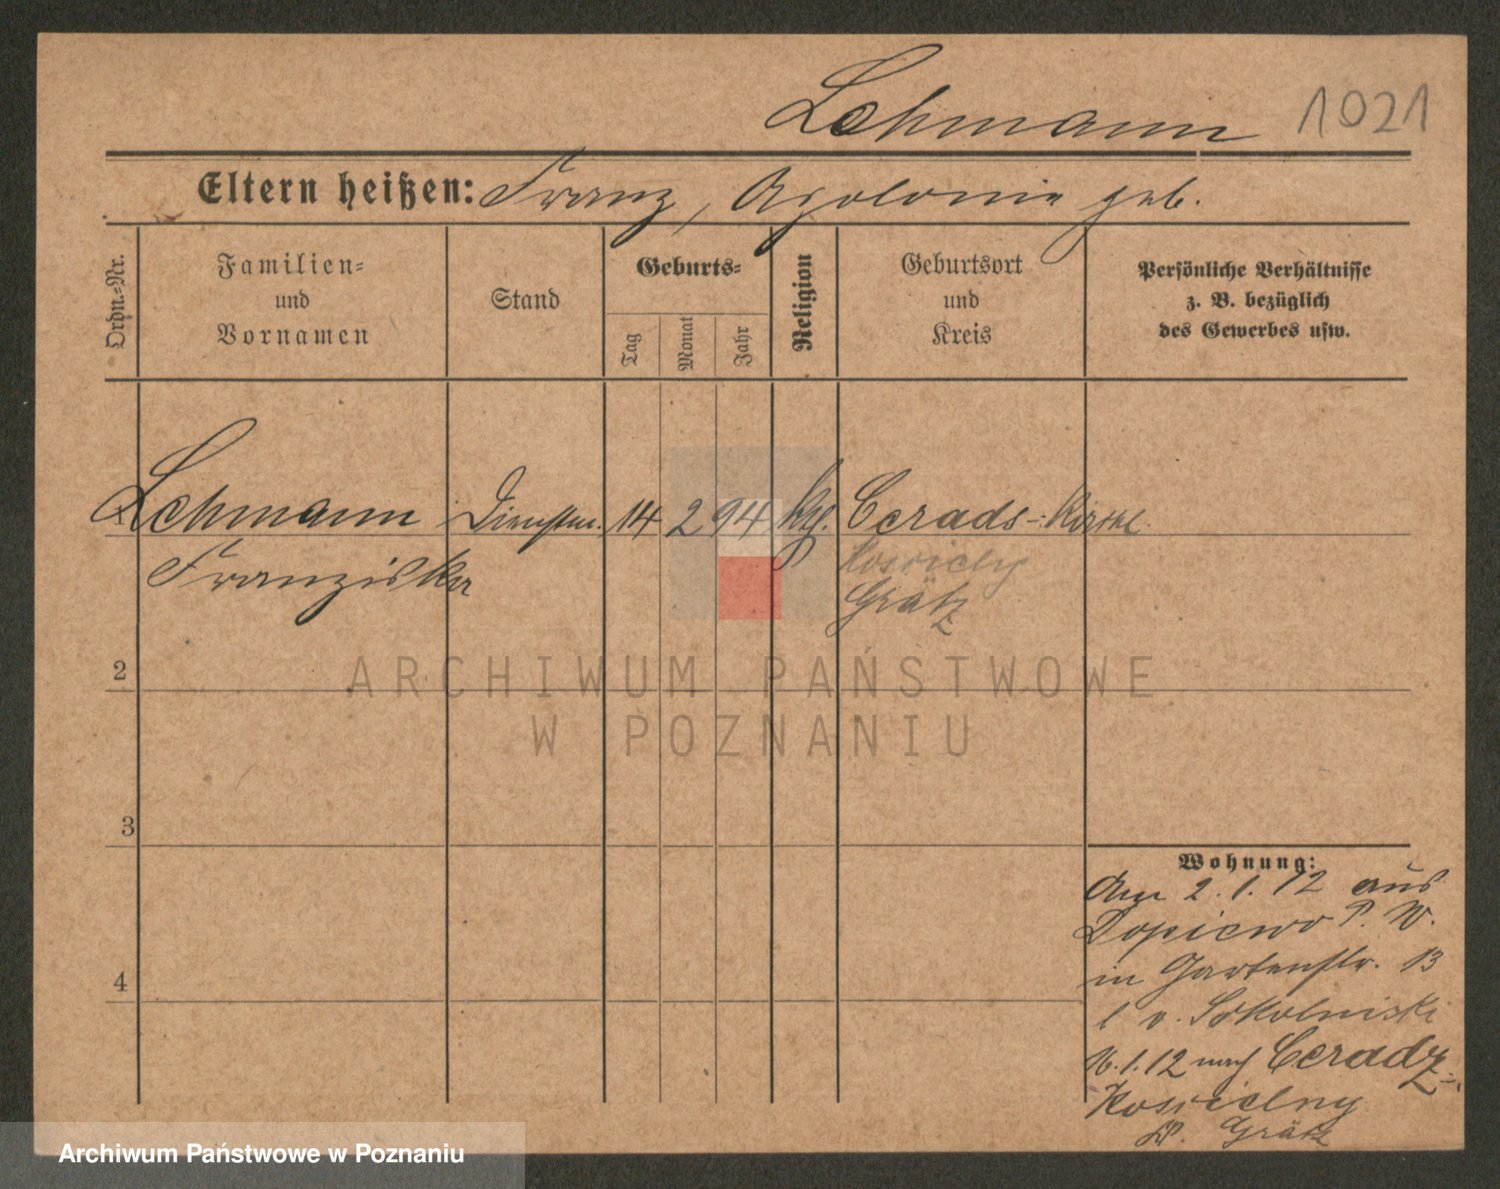 Lehmann 1021
Eltern heißen: Franz, Apolonie geb.
Ordn.-Nr.
Familien-
und
Vornamen
Stand
Geburts-
Tag
Monat
Jahr
Religion
Geburtsort
und
Kreis
Persönliche Verhältnisse
z. B. bezüglich
des Gewerbes usw.
1 Lehmann Dienstm. 14 2 94 kath. Cerads-Kirchl.
Franziska Koscielny
Grätz
2
3
4
Wohnung:
Am 2.1.12 aus
Dopiewo P. W.
in Gartenstr. 13
b v. Sokolniski
16.1.12 nach Ceradz-
Koscielny
Kr. Grätz
ARCHIWUM PAŃSTWOWE
W POZNANIU
Archiwum Państwowe w Poznaniu